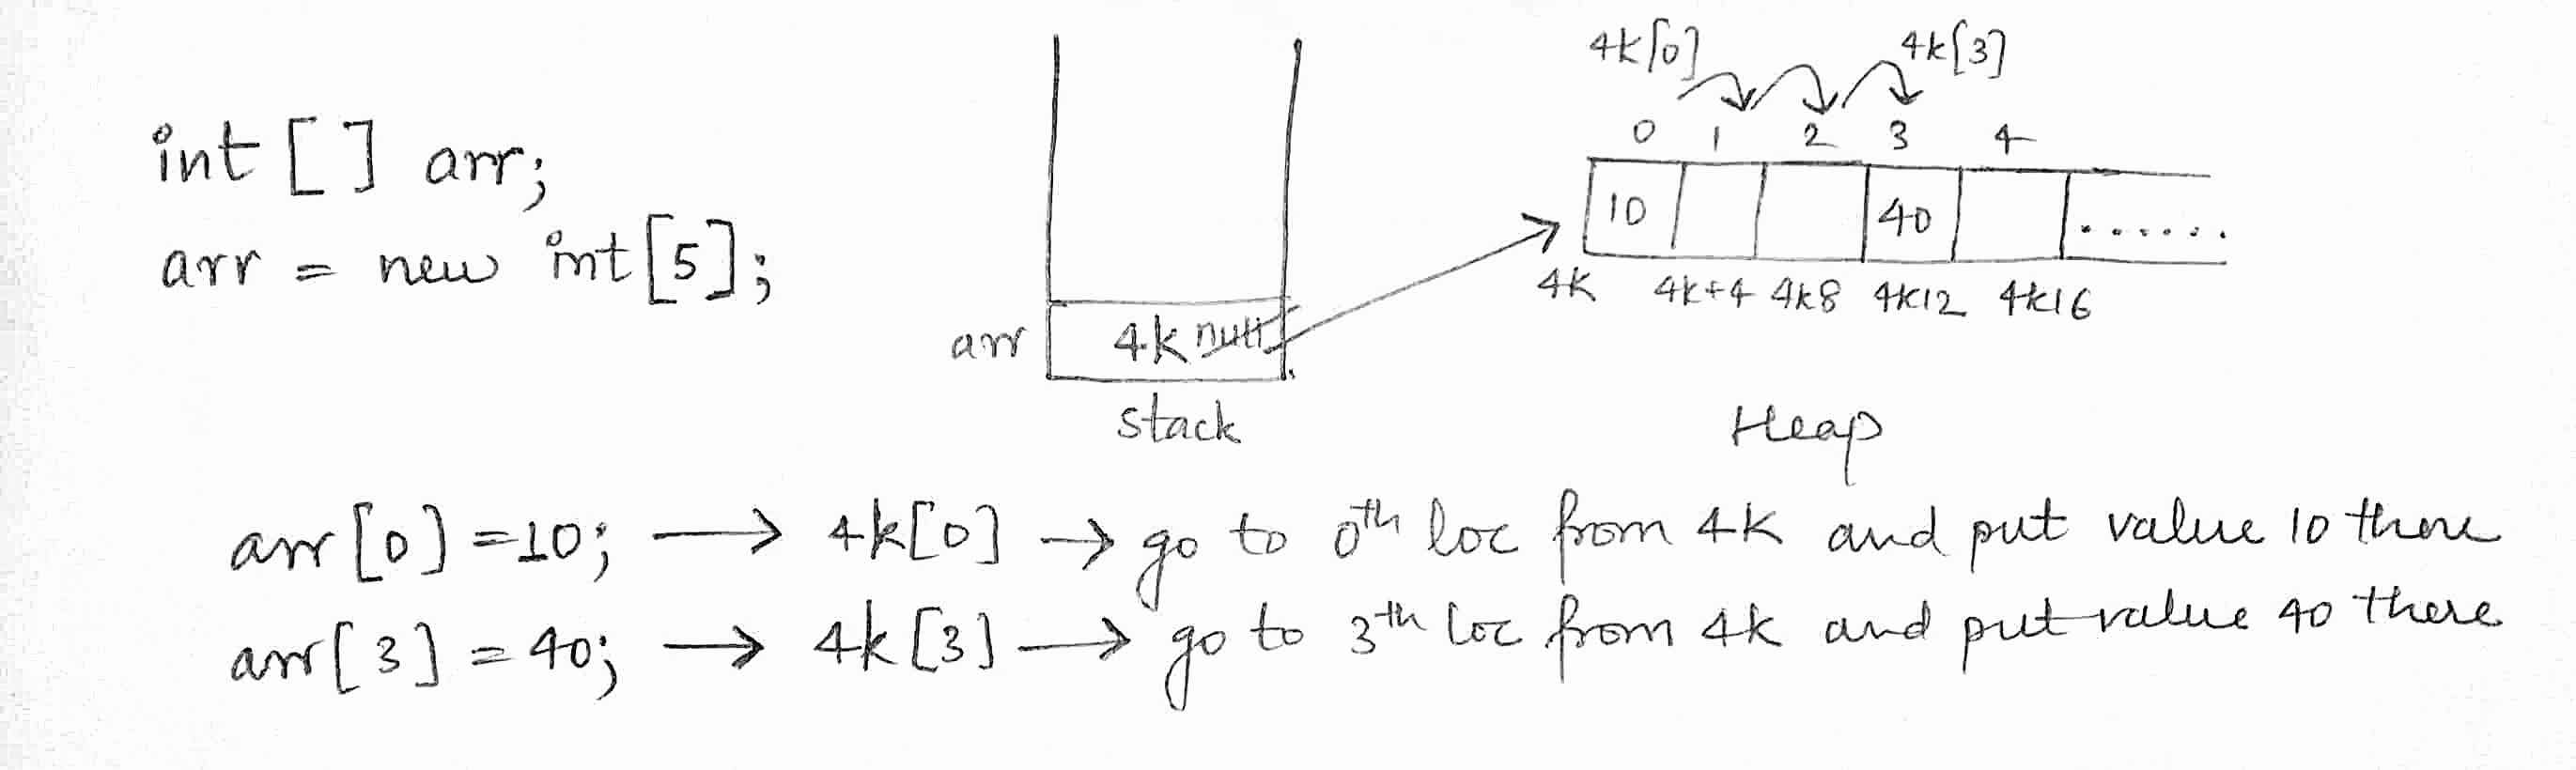 int [ ] arr;
arr = new int[5];
arr
4k null
stack
4k[0]
4k[3]
0 1 2 3 4
10 40 ......
4K 4k+4 4k8 4k12 4k16
Heap
arr[0]=10; → 4k[0] → go to 0th loc from 4K and put value 10 there
arr[3] = 40; → 4k[3] → go to 3th loc from 4k and put value 40 there